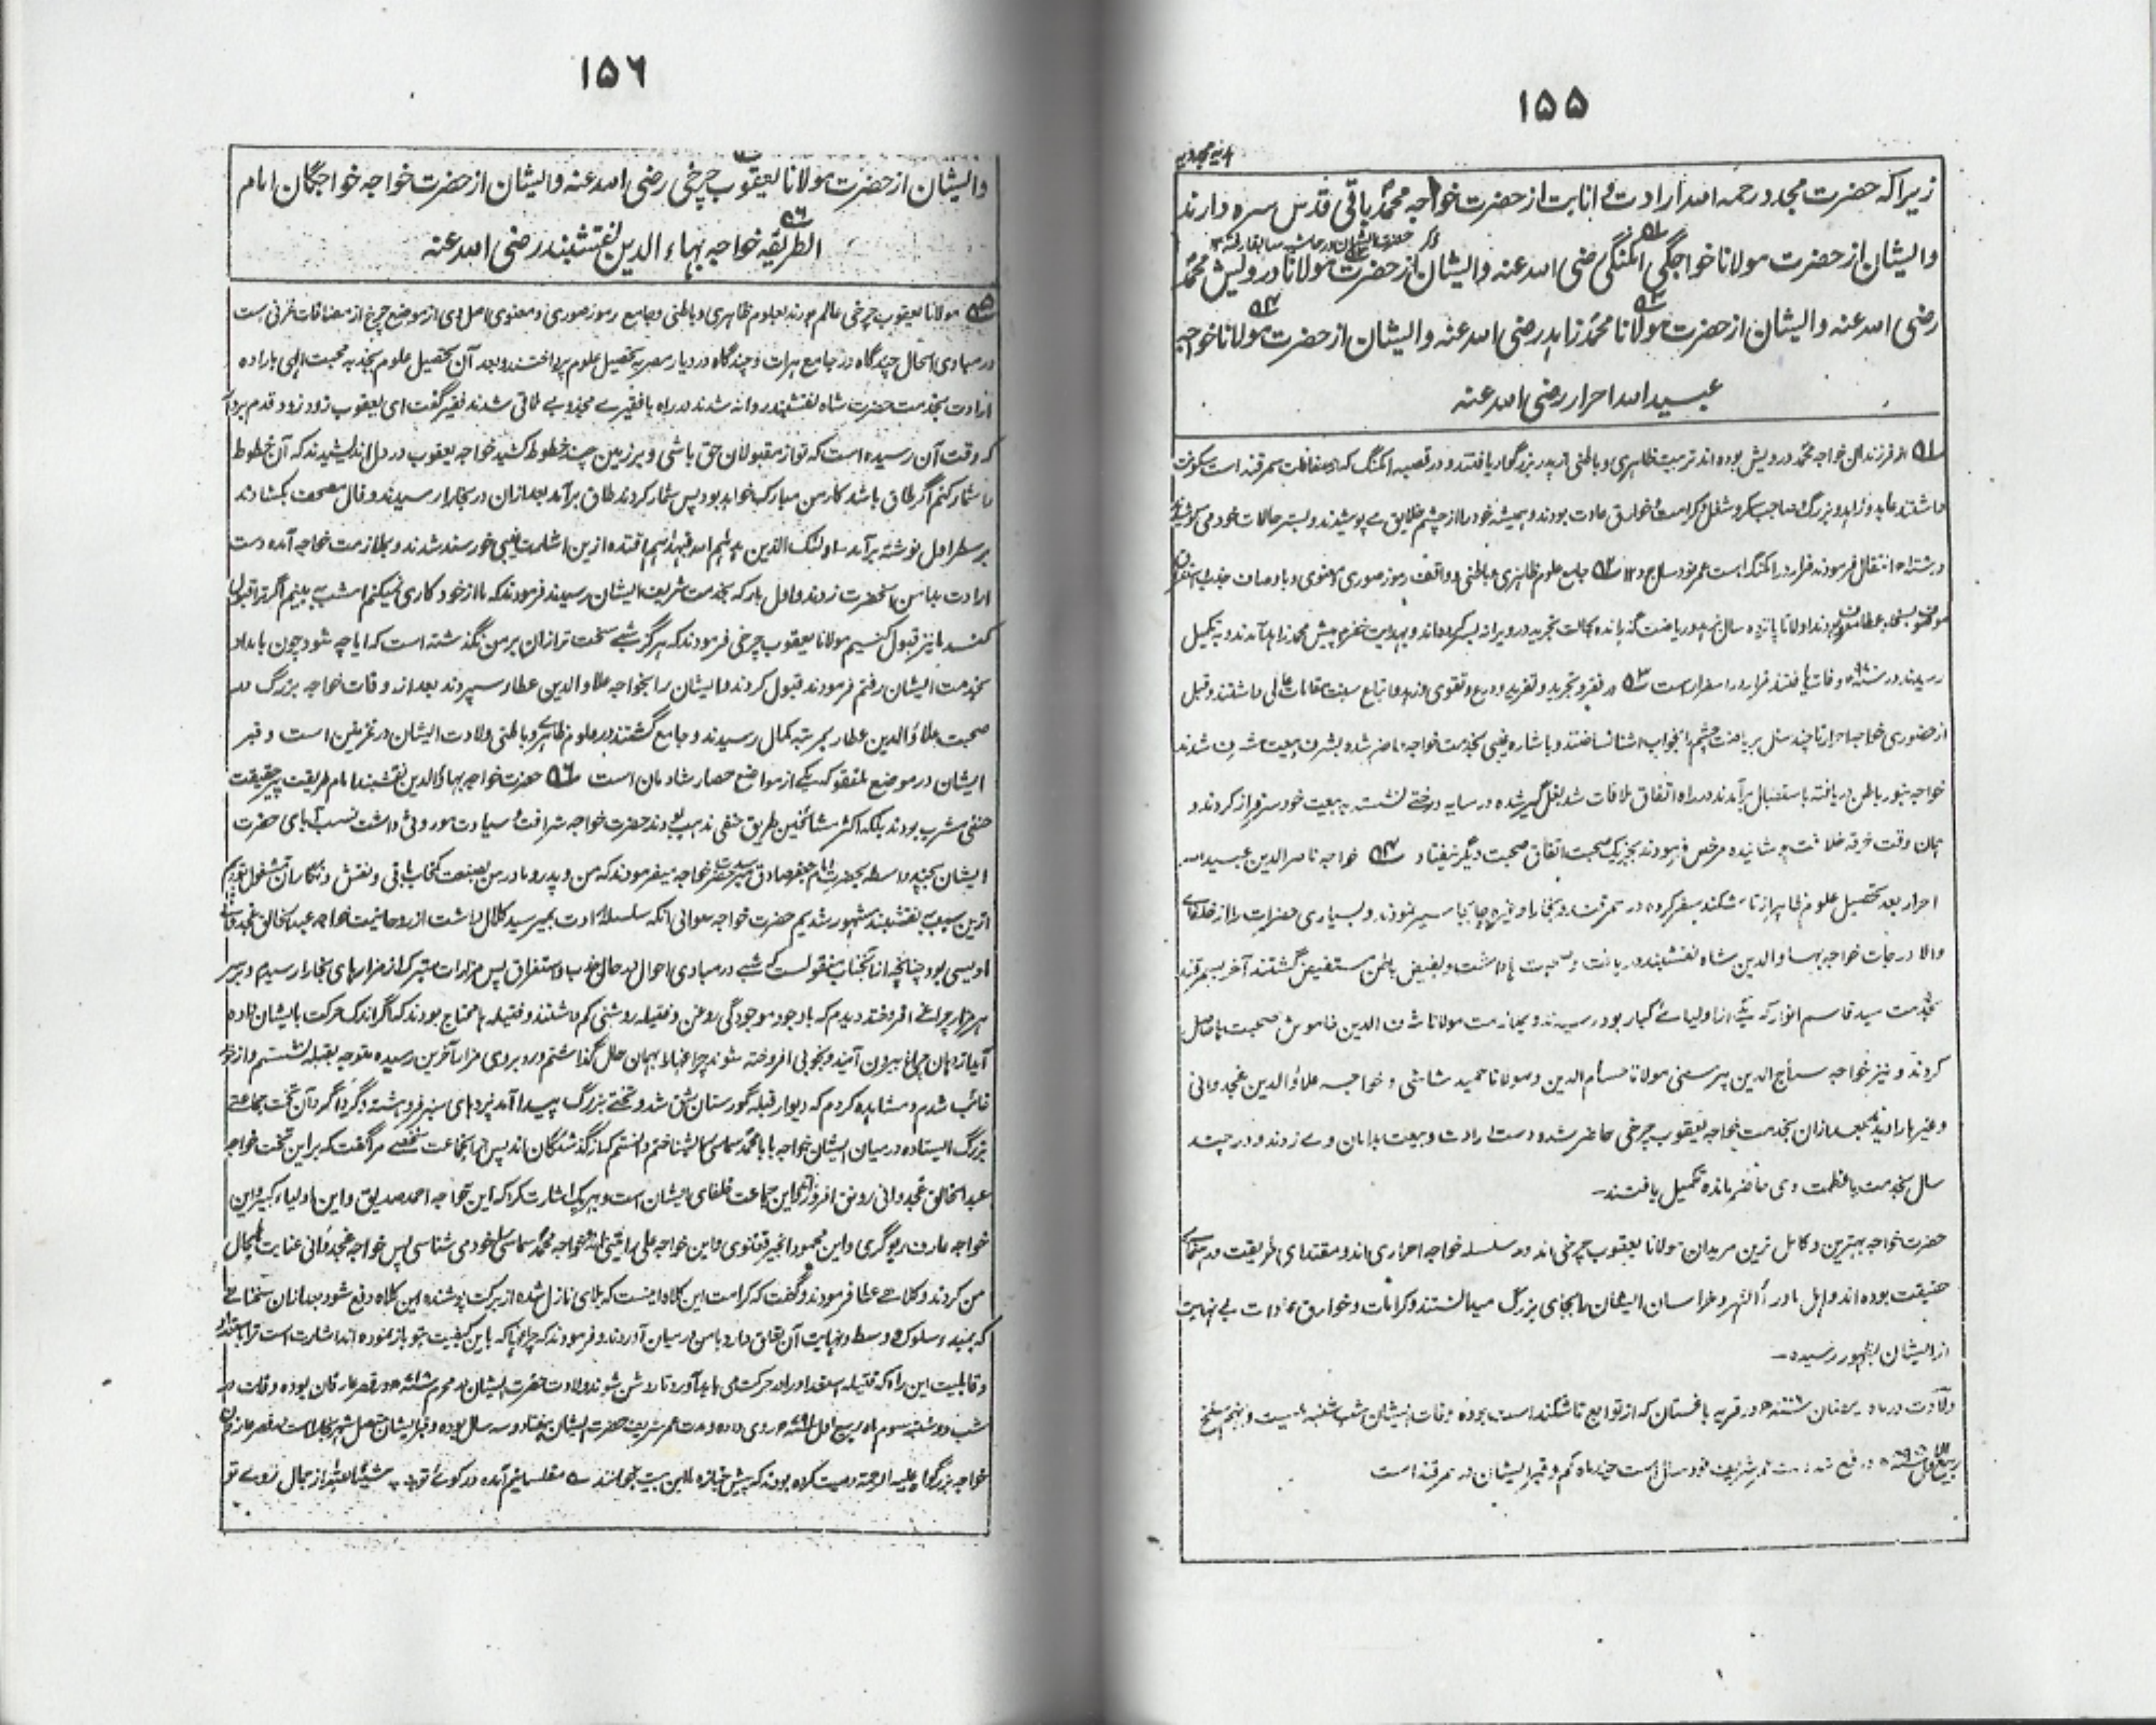 ۱۵۵
زیراکه حضرت مجدد رحمه الله ارادت و انابت از حضرت خواجه محمد باقی قدس سره دارند
وایشان از حضرت مولانا خواجگی امکنگی رضی الله عنه وایشان از حضرت مولانا درویش محمد
رضی الله عنه وایشان از حضرت مولانا محمد زاهد رضی الله عنه وایشان از حضرت مولانا خواجه
عبیدالله احرار رضی الله عنه
۵۱ از فرزندان خواجه محمد درویش بوده اند تربیت ظاهری و باطنی از پدر بزرگوار یافتند و در قصبه امکنگ که از مضافات سمرقند است سکونت
داشتند عابد و زاهد و بزرگ و صاحب سکر و شغل و کرامت و خوارق عادت بودند و همیشه خود را از چشم خلایق می پوشیدند و بستر حالات خود می کوشیدند
انتقال فرمودند قرار در امکنگ است ۵۲ جامع علوم ظاهری و باطنی و واقف رموز صوری و معنوی
اولا تا پانزده سال بزهد و ریاضت گذرانده بحالت تجرید در ویرانه بسر کرده اند پیش محمد زاهد آمدند و به تکمیل
رسیدند در وفات یافتند قرار در اسفرار است ۵۳ در فقر و تجرید و تفرید و ورع و تقوی و زهد و اتباع سنت مقامات عالی داشتند و قبل
از حضوری خواجه احرار تا چند سال بریاضت و باشاره غیبی بخدمت خواجه حاضر شده بشرف بیعت مشرف شدند
خواجه بنور باطن دریافته باستقبال برآمدند در راه اتفاق ملاقات شد بغل گیر شده در سایه درختی نشسته به بیعت خود سرفراز کردند و
همان وقت خرقه خلافت پوشانیده مرخص فرمودند بجز یک صحبت اتفاق صحبت دیگر نیفتاد ۵۴ خواجه ناصر الدین عبیدالله
احرار بعد تحصیل علوم ظاهر از تاشکند سفر کرده در سمرقند و بخارا و غیره جا بجا سیر نمودند و بسیاری حضرات را از خلفای
والا درجات خواجه بهاء الدین شاه نقشبند دریافت و صحبت ها داشت و بفیض باطن مستفیض گشتند آخر بسمرقند
بخدمت سید قاسم انوار که یکی از اولیائے کبار بود رسیدند و بملازمت مولانا شرف الدین خاموش صحبت ها حاصل
کردند و نیز خواجه سراج الدین پرمسنی مولانا حسام الدین و مولانا حمید شاشی و خواجه علاؤالدین غجدوانی
وغیرها را دیدند بعد ازان بخدمت خواجه یعقوب چرخی حاضر شده دست ارادت و بیعت بدامان وے زدند و در چند
سال بخدمت باعظمت وی حاضر مانده تکمیل یافتند۔
حضرت خواجه بهترین و کامل ترین مریدان مولانا یعقوب چرخی اند و در سلسله خواجه احراری اند و مقتدای طریقت و در مقام
حقیقت بوده اند و اهل ماوراء النهر و خراسان ایشان را بجای بزرگ میدانستند و کرامات و خوارق عادات بی نهایت
از ایشان بظهور رسیده۔
ولادت در ماه رمضان در قریه باغستان که از توابع تاشکند است بوده وفات ایشان شب شنبه بیست و نهم سلخ
ربیع الاول عمر شریف نود سال است چهار ماه کم و قبر ایشان در سمرقند است
۱۵۶
وایشان از حضرت مولانا یعقوب چرخی رضی الله عنه وایشان از حضرت خواجه خواجگان امام
الطریقه خواجه بهاء الدین نقشبند رضی الله عنه
۵۵ مولانا یعقوب چرخی عالم بودند بعلوم ظاهری و باطنی و جامع رموز صوری و معنوی اصل وی از موضع چرخ از مضافات غزنی است
در مبادی الحال چند گاه در جامع هرات و چند گاه در دیار مصر به تحصیل علوم پرداختند و بعد آن تحصیل علوم بجذبه محبت الهی باراده
ارادت بخدمت حضرت شاه نقشبند روانه شدند در راه با فقیرے مجذوبے ملاقی شدند فقیر گفت ای یعقوب زود زود قدم بردار
که وقت آن رسیده است که تو از مقبولان حق باشی و بر زمین چند خطوط کشید خواجه یعقوب در دل اندیشیدند که آن خطوط
را شمار کنم اگر طاق باشد کار من مبارک خواهد بود پس شمار کردند طاق برآمد بعد ازان در بخارا رسیدند و فال مصحف بکشادند
بر سطر اول نوشته برآمد اولئک الذین هدیهم الله فبهدیهم اقتده ازین اشارت غیبی خورسند شدند و بملازمت خواجه آمده دست
ارادت بدامن آنحضرت زدند و اول بار که بخدمت شریف ایشان رسیدند فرمودند که ما از خود کاری نمیکنم امشب به بینم اگر ترا قبول
کنند ما نیز قبول کنیم مولانا یعقوب چرخی فرمودند که هرگز شبے سخت تر ازان بر من نگذشته است که آیا چه شود چون بامداد
بخدمت ایشان رفتم فرمودند قبول کردند و ایشان را بخواجه علاوالدین عطار سپردند بعد از وفات خواجه بزرگ در
صحبت علاؤالدین عطار بمرتبه کمال رسیدند و جامع گشتند در علوم ظاهری و باطنی ولادت ایشان در غزنین است و قبر
ایشان در موضع هلفتو که یکے از مواضع حصار شادمان است ۵۶ حضرت خواجه بهاؤالدین نقشبند امام طریقت پیر حقیقت
حنفی مشرب بودند بلکه اکثر مشائخین طریق حنفی مذهب بودند حضرت خواجه شرافت و سیادت موروثی داشت نسب آبای حضرت
ایشان بچند واسطه بحضرت امام جعفر صادق میرسد حضرت خواجه میفرمودند که من و پدر و مادر من بصنعت کمخاب بافی و نقش و نگار آن مشغول بودیم
ازین سبب به نقشبند مشهور شدیم حضرت خواجه سلسله ارادت بمیر سید کلال داشت از روحانیت خواجه عبدالخالق غجدوانی
اویسی بود چنانچه از آنجناب منقولست که شبے در مبادی احوال در حال جذب و استغراق پس مزارات متبرک از مزارهای بخارا رسیدم و بر سر
هر مزار چراغے افروخته دیدم که باوجود موجودگی روغن و فتیله روشنی کم داشتند و فتیله ها محتاج بودند که اگر اندک حرکت بایشان داده
آید از همان چراغ بیرون آمدند و بخوبی افروخته شوند چراغها را بهمان حال گذاشتم و رو بروی مزار آخرین رسیده متوجه بقبله نشستم و از خود
غائب شدم و مشاهده کردم که دیوار قبله گورستان شق شد و تختے بزرگ پیدا آمد پردهای سبز فروهشته و گرداگرد آن تخت جماعتے
بزرگ ایستاده در میان ایشان خواجه بابا محمد سماسی را بشناختم دانستم که از گذشتگان اند پس ازان جماعت شخصے مرا گفت که بر این تخت خواجه
عبدالخالق غجدوانی رونق افروز اند و این جماعت خلفای ایشان است و بهر یک اشارت کرد که این خواجه احمد صدیق و این اولیاء کبیر و این
خواجه عارف ریوگری و این محمود انجیر فغنوی و این خواجه علی رامیتنی اند و خواجه محمد سماسی را خود می شناسی پس خواجه غجدوانی عنایت بحال
من کردند و کلاهے عطا فرمودند و گفت که کرامت این کلاه اینست که بلای نازل شده از برکت پوشنده این کلاه دفع شود بعد ازان سخنانے
که بمبدء سلوک و وسط و نهایت آن تعلق دارد با من در میان آوردند و فرمودند که چراغها که باین کیفیت بتو باز نموده اند اشارت است ترا باستعداد
و قابلیت این راه که فتیله استعداد را در حرکت می باید آورد تا روشن شوند ولادت حضرت ایشان در محرم در قصر عارفان بوده وفات در
شب دوشنبه سوم ماه ربیع اول روی داده و مدت عمر شریف حضرت ایشان هفتاد و سه سال بوده و قبر ایشان متصل شهر بخارا است در قصر عارفان
خواجه بزرگوار علیه الرحمة وصیت کرده بودند که پیش جنازه ما این بیت بخوانند ے مفلسانیم آمده در کوئے تو شیئا لله از جمال روے تو